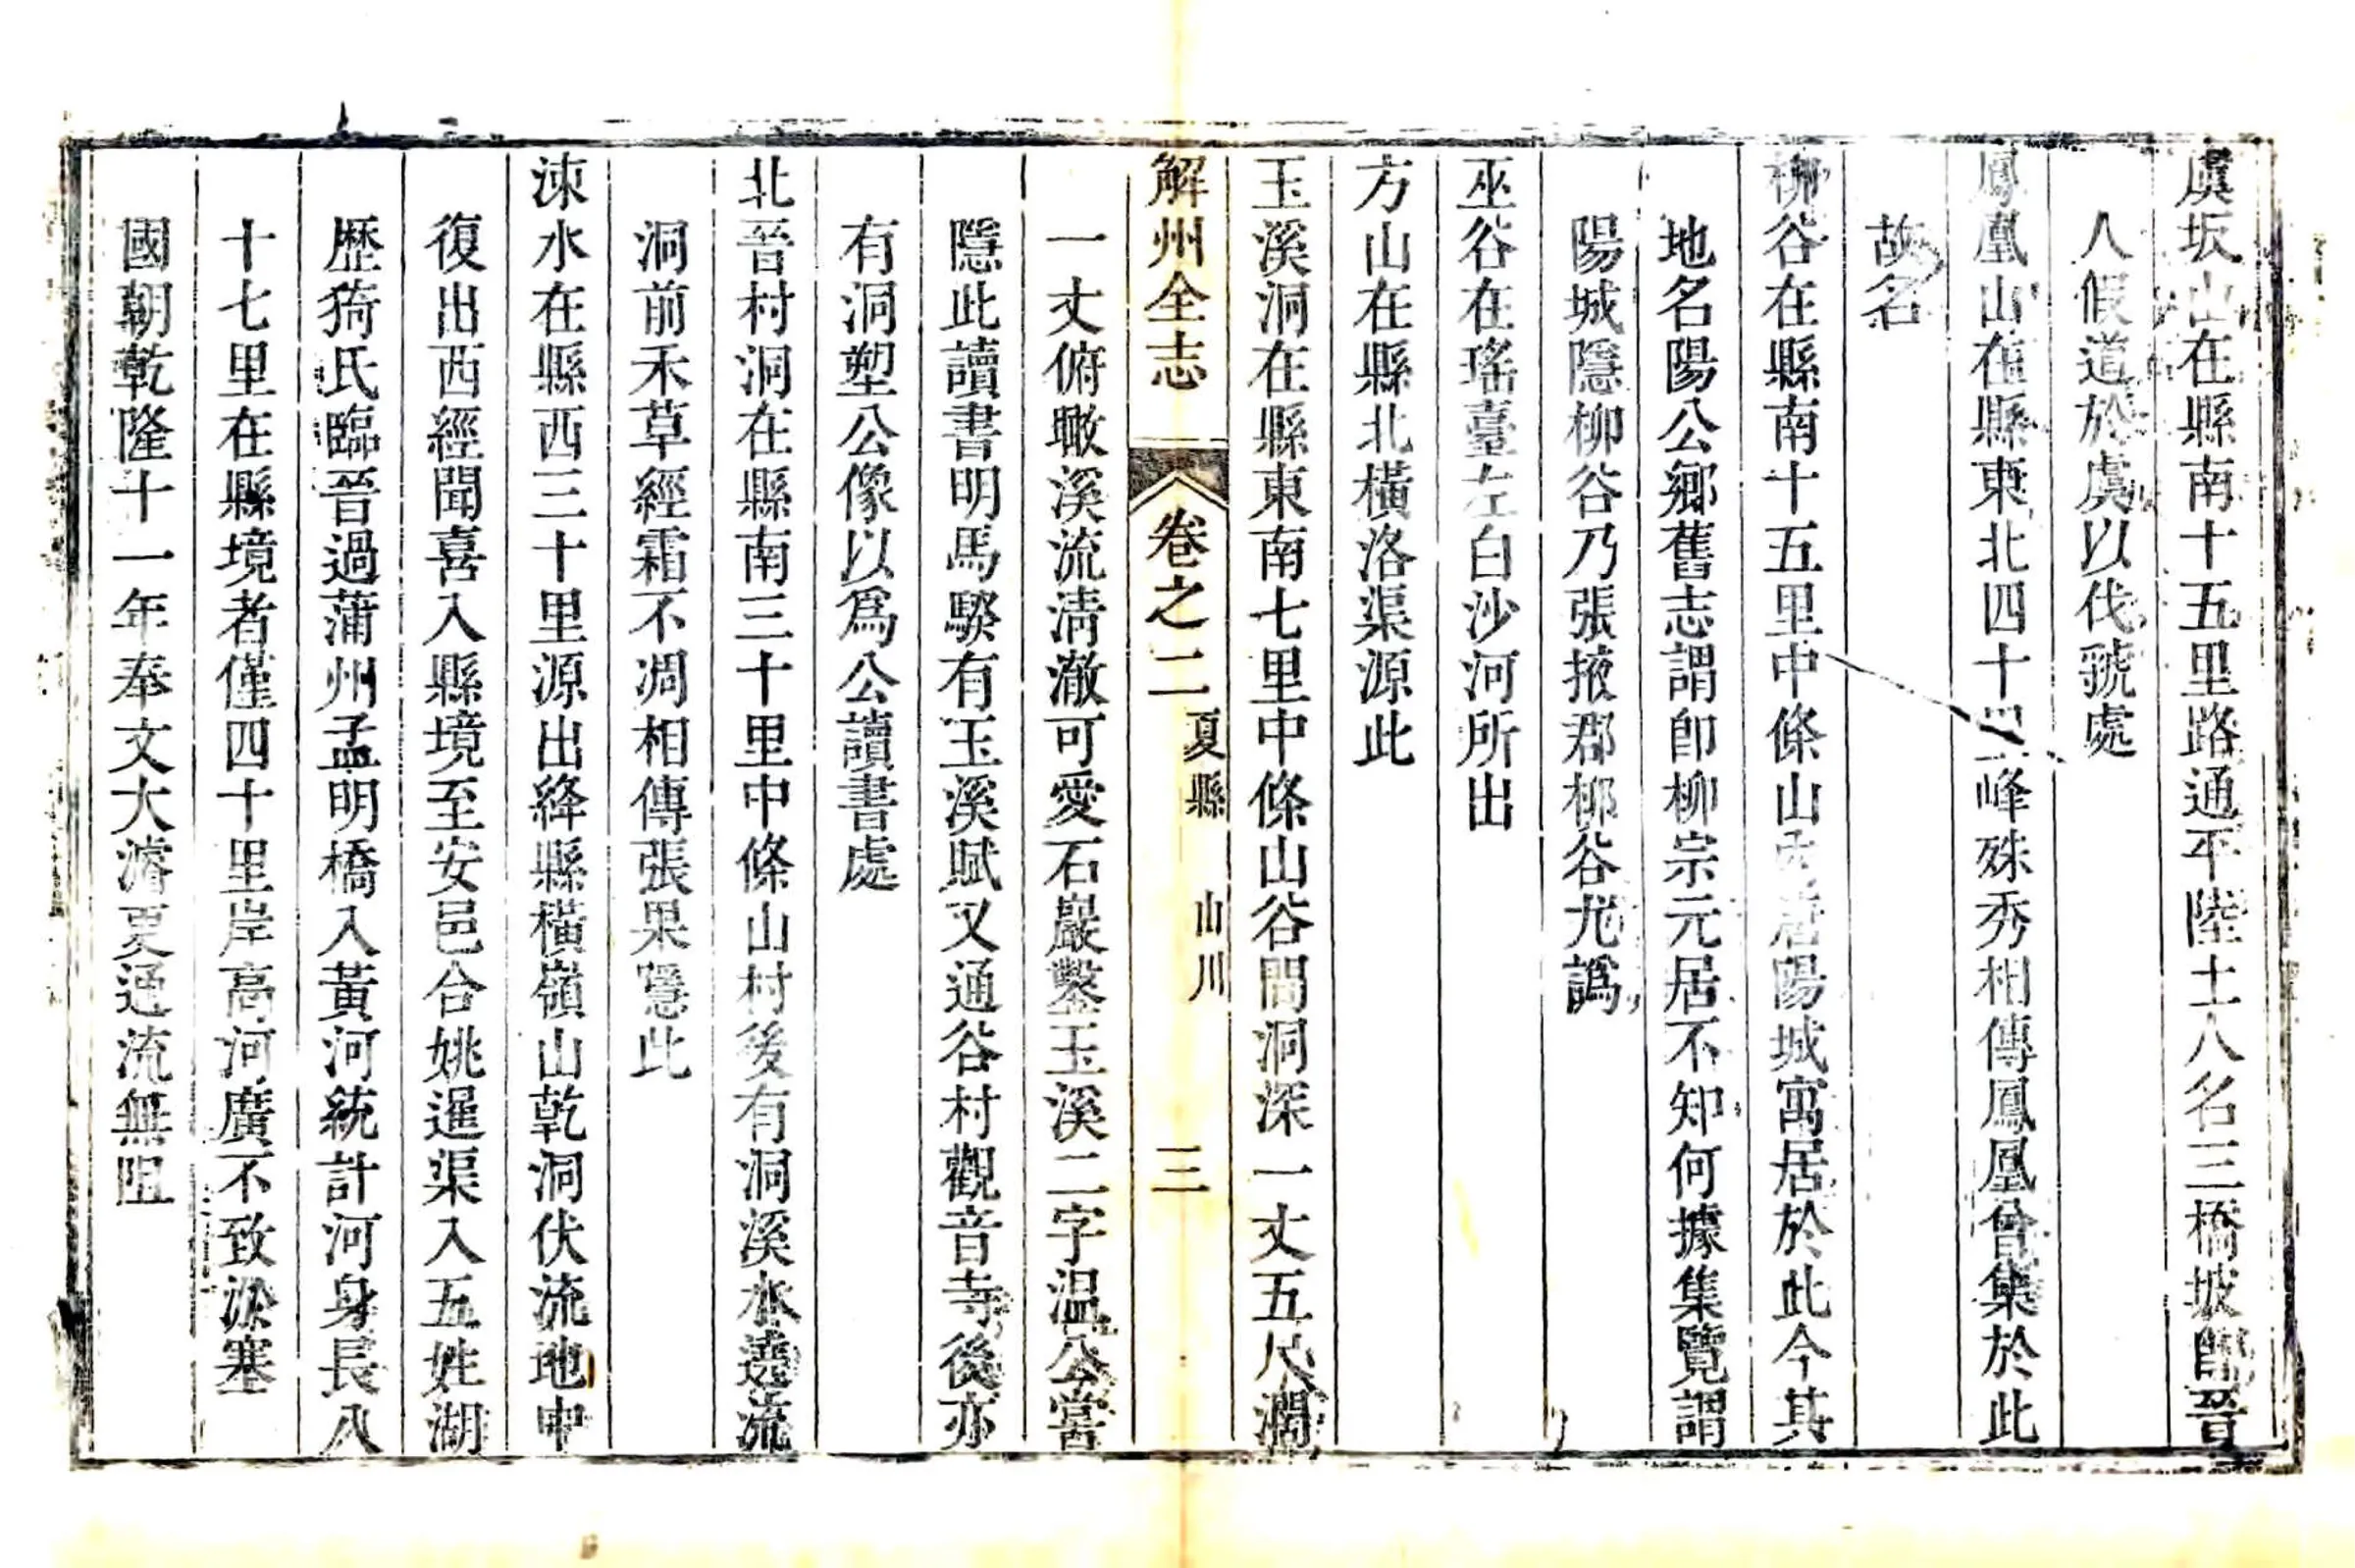 虞坂山在縣南十五里路通平陸土人名三橋坡卽晉
人假道於虞以伐虢處
鳳凰山在縣東北四十里峰殊秀相傳鳳凰曾集於此
故名
柳谷在縣南十五里中條山內唐陽城寓居於此今其
地名陽公鄉舊志謂卽柳宗元居不知何據集覽謂
陽城隱柳谷乃張掖郡柳谷尤譌
巫谷在瑤臺左白沙河所出
方山在縣北橫洛渠源此
玉溪洞在縣東南七里中條山谷間洞深一丈五尺濶
解州全志 卷之二 夏縣 山川 三
一丈俯瞰溪流清澈可愛石巖鑿玉溪二字温公嘗
隱此讀書明馬騤有玉溪賦又通谷村觀音寺後亦
有洞塑公像以爲公讀書處
北晉村洞在縣南三十里中條山村後有洞溪水遶流
洞前禾草經霜不凋相傳張果隱此
涑水在縣西三十里源出絳縣橫嶺山乾洞伏流地中
復出西經聞喜入縣境至安邑合姚暹渠入五姓湖
歷猗氏臨晉過蒲州孟明橋入黃河統計河身長八
十七里在縣境者僅四十里岸高河廣不致淤塞
國朝乾隆十一年奉文大濬夏通流無阻